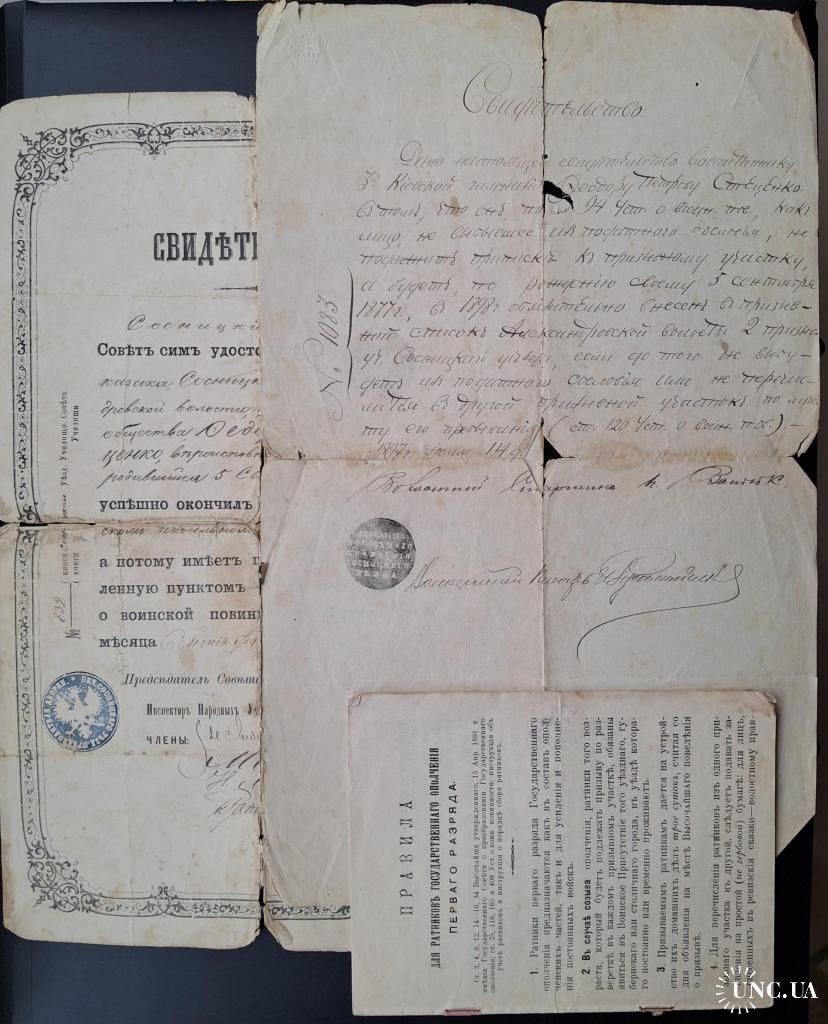 СВИДѢТ
Сосницкі
Совѣтъ симъ удосто
казака, Сосницк
дровской волости
общества Ѳедо
ценко, вѣроисповѣ
родившійся 5 Се
успѣшно окончилъ
а потому имѣетъ п
ленную пунктомъ
о воинской повин
мѣсяца
Предсѣдатель Совѣт
Инспекторъ Народныхъ У
ЧЛЕНЫ:
Уѣзд. Училищ. Совѣта
Училища
№ 832 книги
Свидѣтельство
Дано настоящее свидѣтельство воспитаннику
3й Кіевской гимназіи Ѳеодору Петрову Стеценко
въ томъ, что онъ по 94 ст. о воин. пов., какъ
лицо, не выбывшее изъ податнаго сословія, не
подлежитъ припискѣ къ призывному участку,
а будетъ, по рожденію своему 5 сентября
1877 г., въ 1898 г. обязательно внесенъ въ призыв-
ной списокъ Александровской волости 2 призыв.
уч. Сосницкаго уѣзда, если до того не выбу-
детъ изъ податного сословія или не перечис-
лится въ другой призывной участокъ по мѣс-
ту его проживанія (ст. 120 Уст. о воин. пов.).—
1897 г. іюля 14 д.
№ 1083
Волостной Старшина
Волостной Писарь
ПРАВИЛА
ДЛЯ РАТНИКОВЪ ГОСУДАРСТВЕННАГО ОПОЛЧЕНІЯ
ПЕРВАГО РАЗРЯДА.
Ст. 3, 4, 8, 12, 14—16, 34 Высочайше утвержденнаго, 15 Апр. 1891 г.
мнѣнія Государственнаго Совѣта о преобразованіи Государственнаго
ополченія; ст. 25, 118, 185 и 468 Уст. о воин. повинности; инструкція объ
учетѣ ратниковъ и инструкція о порядкѣ сбора ратниковъ.
1. Ратники перваго разряда Государственнаго
ополченія предназначаются какъ въ составъ опол-
ченскихъ частей, такъ и для усиленія и пополне-
нія постоянныхъ войскъ.
2. Въ случаѣ созыва ополченія, ратники того воз-
раста, который будетъ подлежать призыву по раз-
версткѣ въ каждомъ призывномъ участкѣ, обязаны
явиться въ Воинское Присутствіе того уѣзднаго, гу-
бернскаго или столичнаго города, въ уѣздѣ котора-
го постоянно или временно проживаютъ.
3. Призываемымъ ратникамъ дается на устрой-
ство ихъ домашнихъ дѣлъ трое сутокъ, считая со
дня объявленія на мѣстѣ Высочайшаго повелѣнія
о призывѣ.
4. Для перечисленія ратниковъ изъ одного при-
зывнаго участка въ другой, слѣдуетъ подавать за-
явленія на простой (не гербовой) бумагѣ: для лицъ,
приписанныхъ въ ревизскія сказки—волостному прав-
UNC.UA